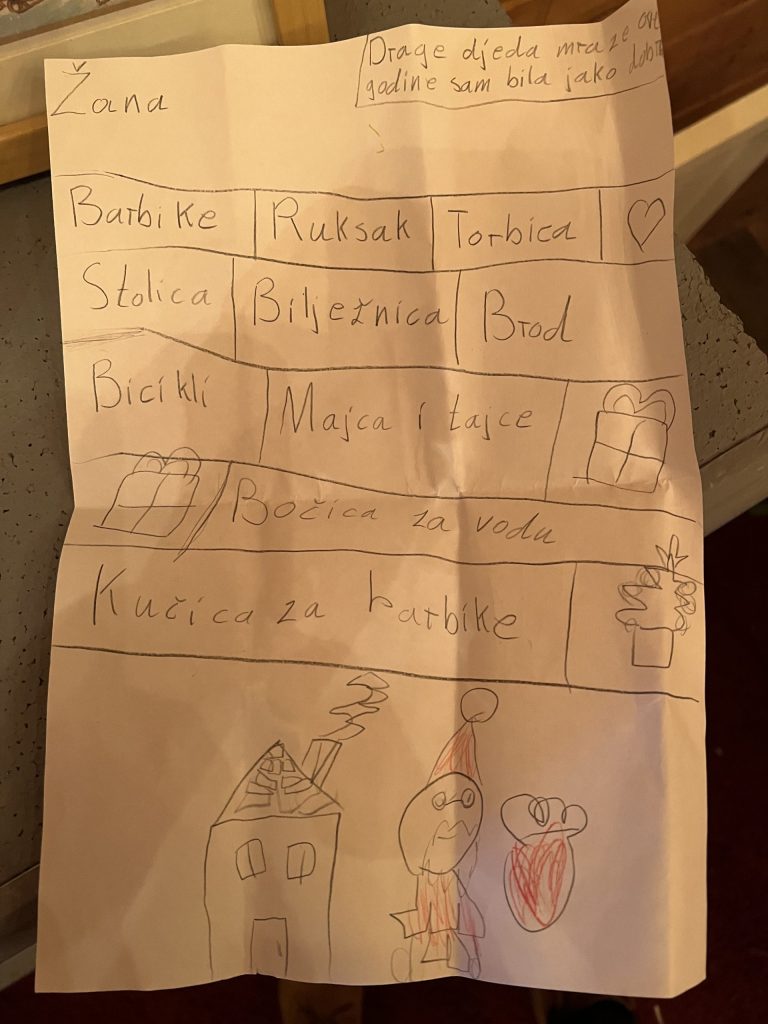 Žana
Drage djeda mraze ove
godine sam bila jako dobra
Barbike Ruksak Torbica
Stolica Bilježnica Brod
Bicikli Majca i tajce
Bočica za vodu
Kučica za barbike